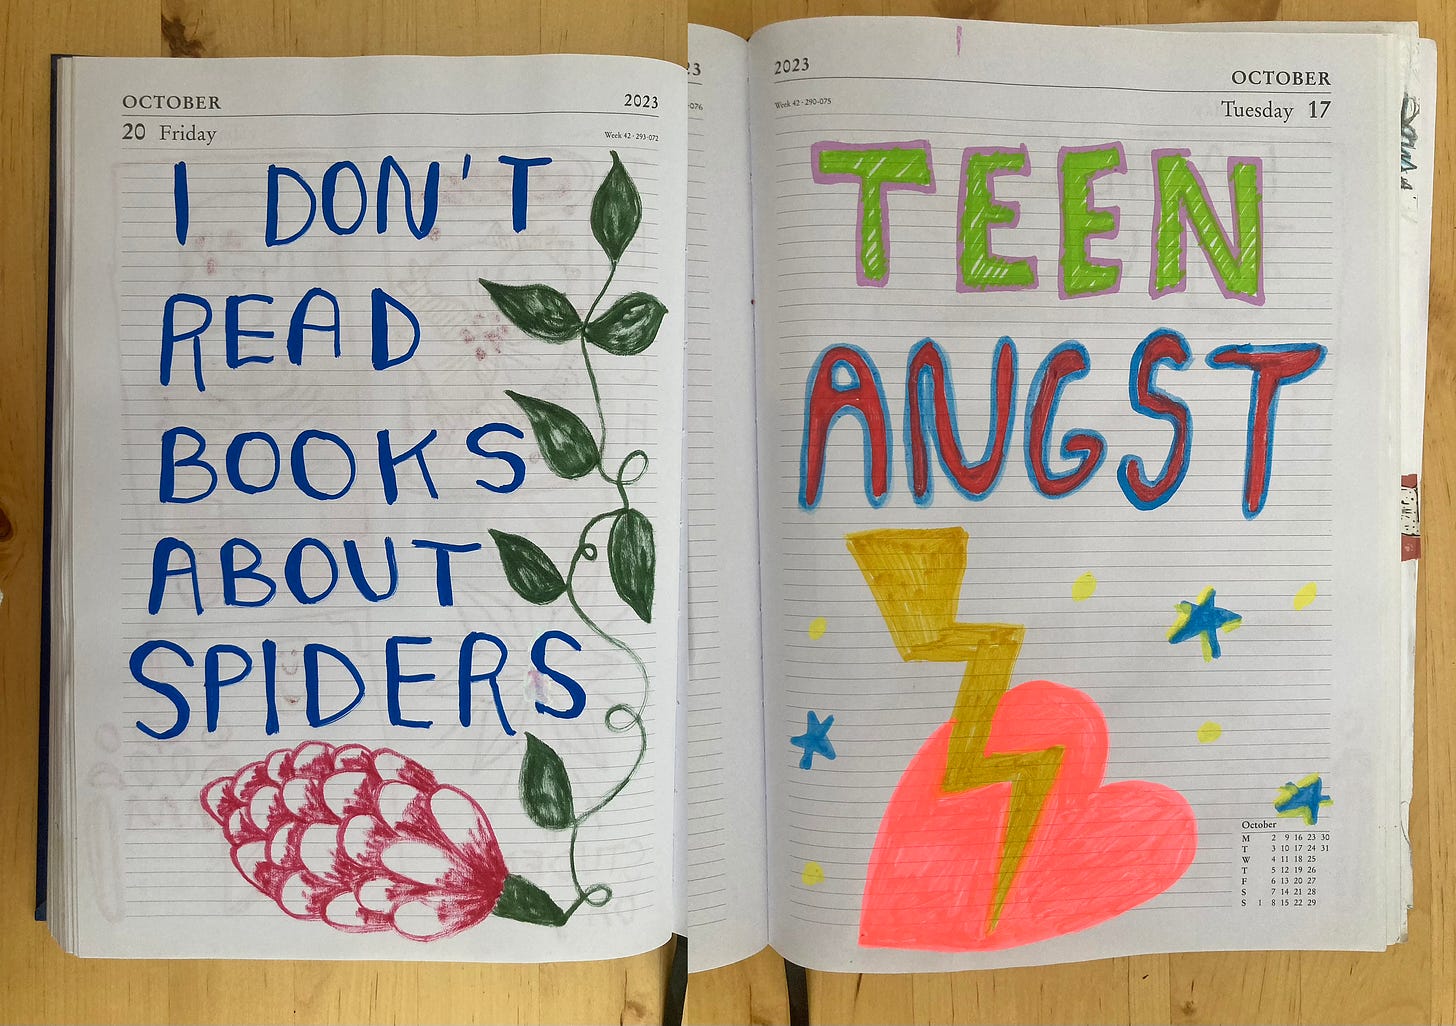 OCTOBER 2023
20 Friday Week 42 · 293-072
I DON'T
READ
BOOKS
ABOUT
SPIDERS
23
-076
2023
OCTOBER
Week 42 · 290-075
Tuesday 17
TEEN
ANGST
October
M 2 9 16 23 30
T 3 10 17 24 31
W 4 11 18 25
T 5 12 19 26
F 6 13 20 27
S 7 14 21 28
S 1 8 15 22 29